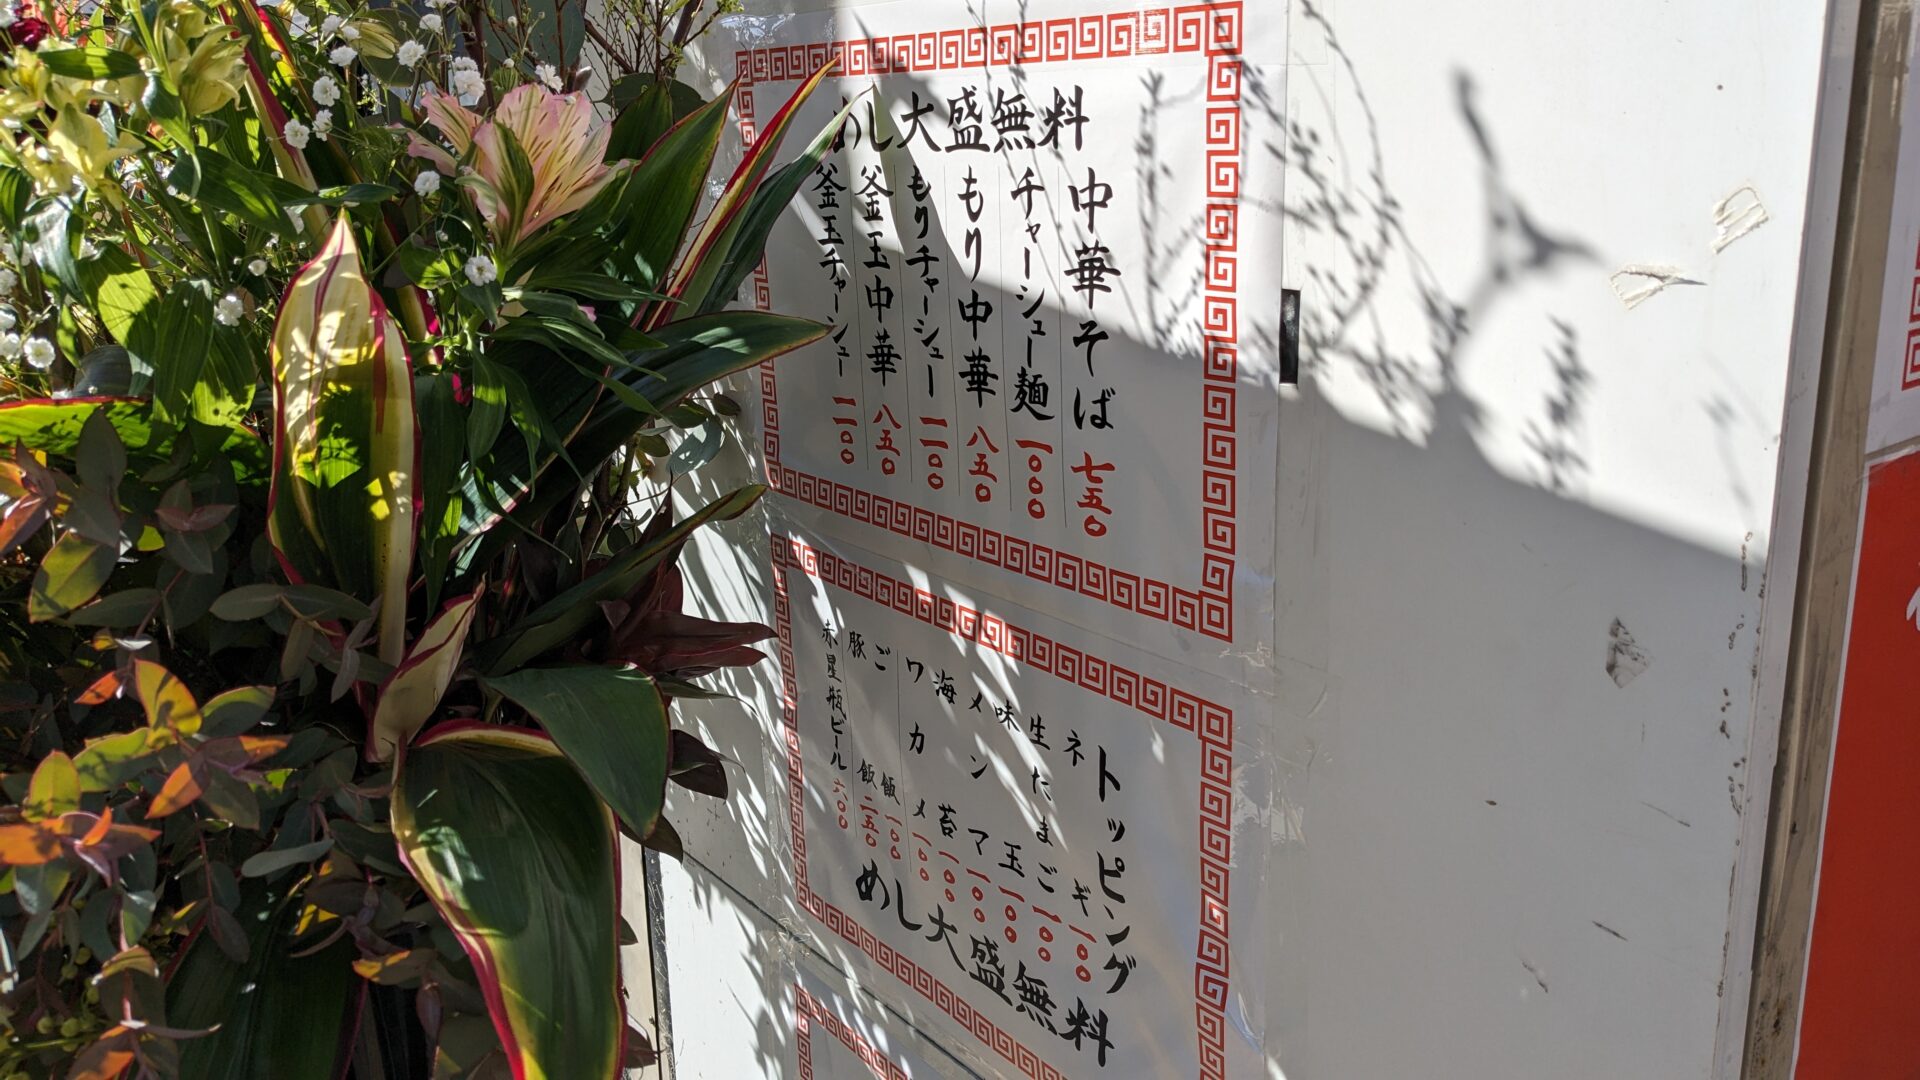 めし大盛無料
中華そば 七五〇
チャーシュー麺 一〇〇〇
もり中華 八五〇
もりチャーシュー 一一〇〇
釜玉中華 八五〇
釜玉チャーシュー 一一〇〇
トッピング
ネギ 一〇〇
生たまご 一〇〇
味玉 一〇〇
メンマ 一〇〇
海苔 一〇〇
ワカメ 一〇〇
ご飯 一〇〇
豚飯 二五〇
赤星瓶ビール 六〇〇
めし大盛無料